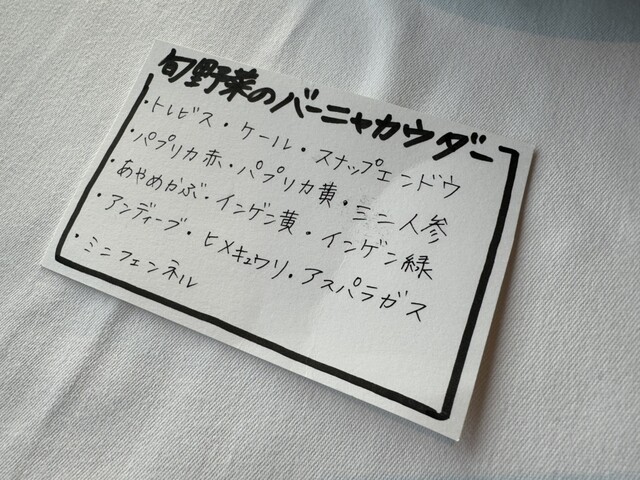 旬野菜のバーニャカウダー
・トレビス・ケール・スナップエンドウ
・パプリカ赤・パプリカ黄・ミニ人参
・あやめかぶ・インゲン黄・インゲン緑
・アンディーブ・ヒメキュウリ・アスパラガス
・ミニフェンネル